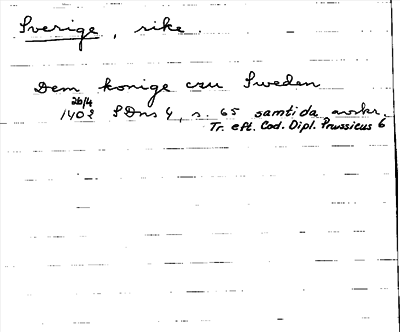 Sverige, rike.
Dem konige czu Sweden
26/4
1402 SDns 4, s. 65 samtida avskr.
Tr. eft. Cod. Dipl. Prussicus 6